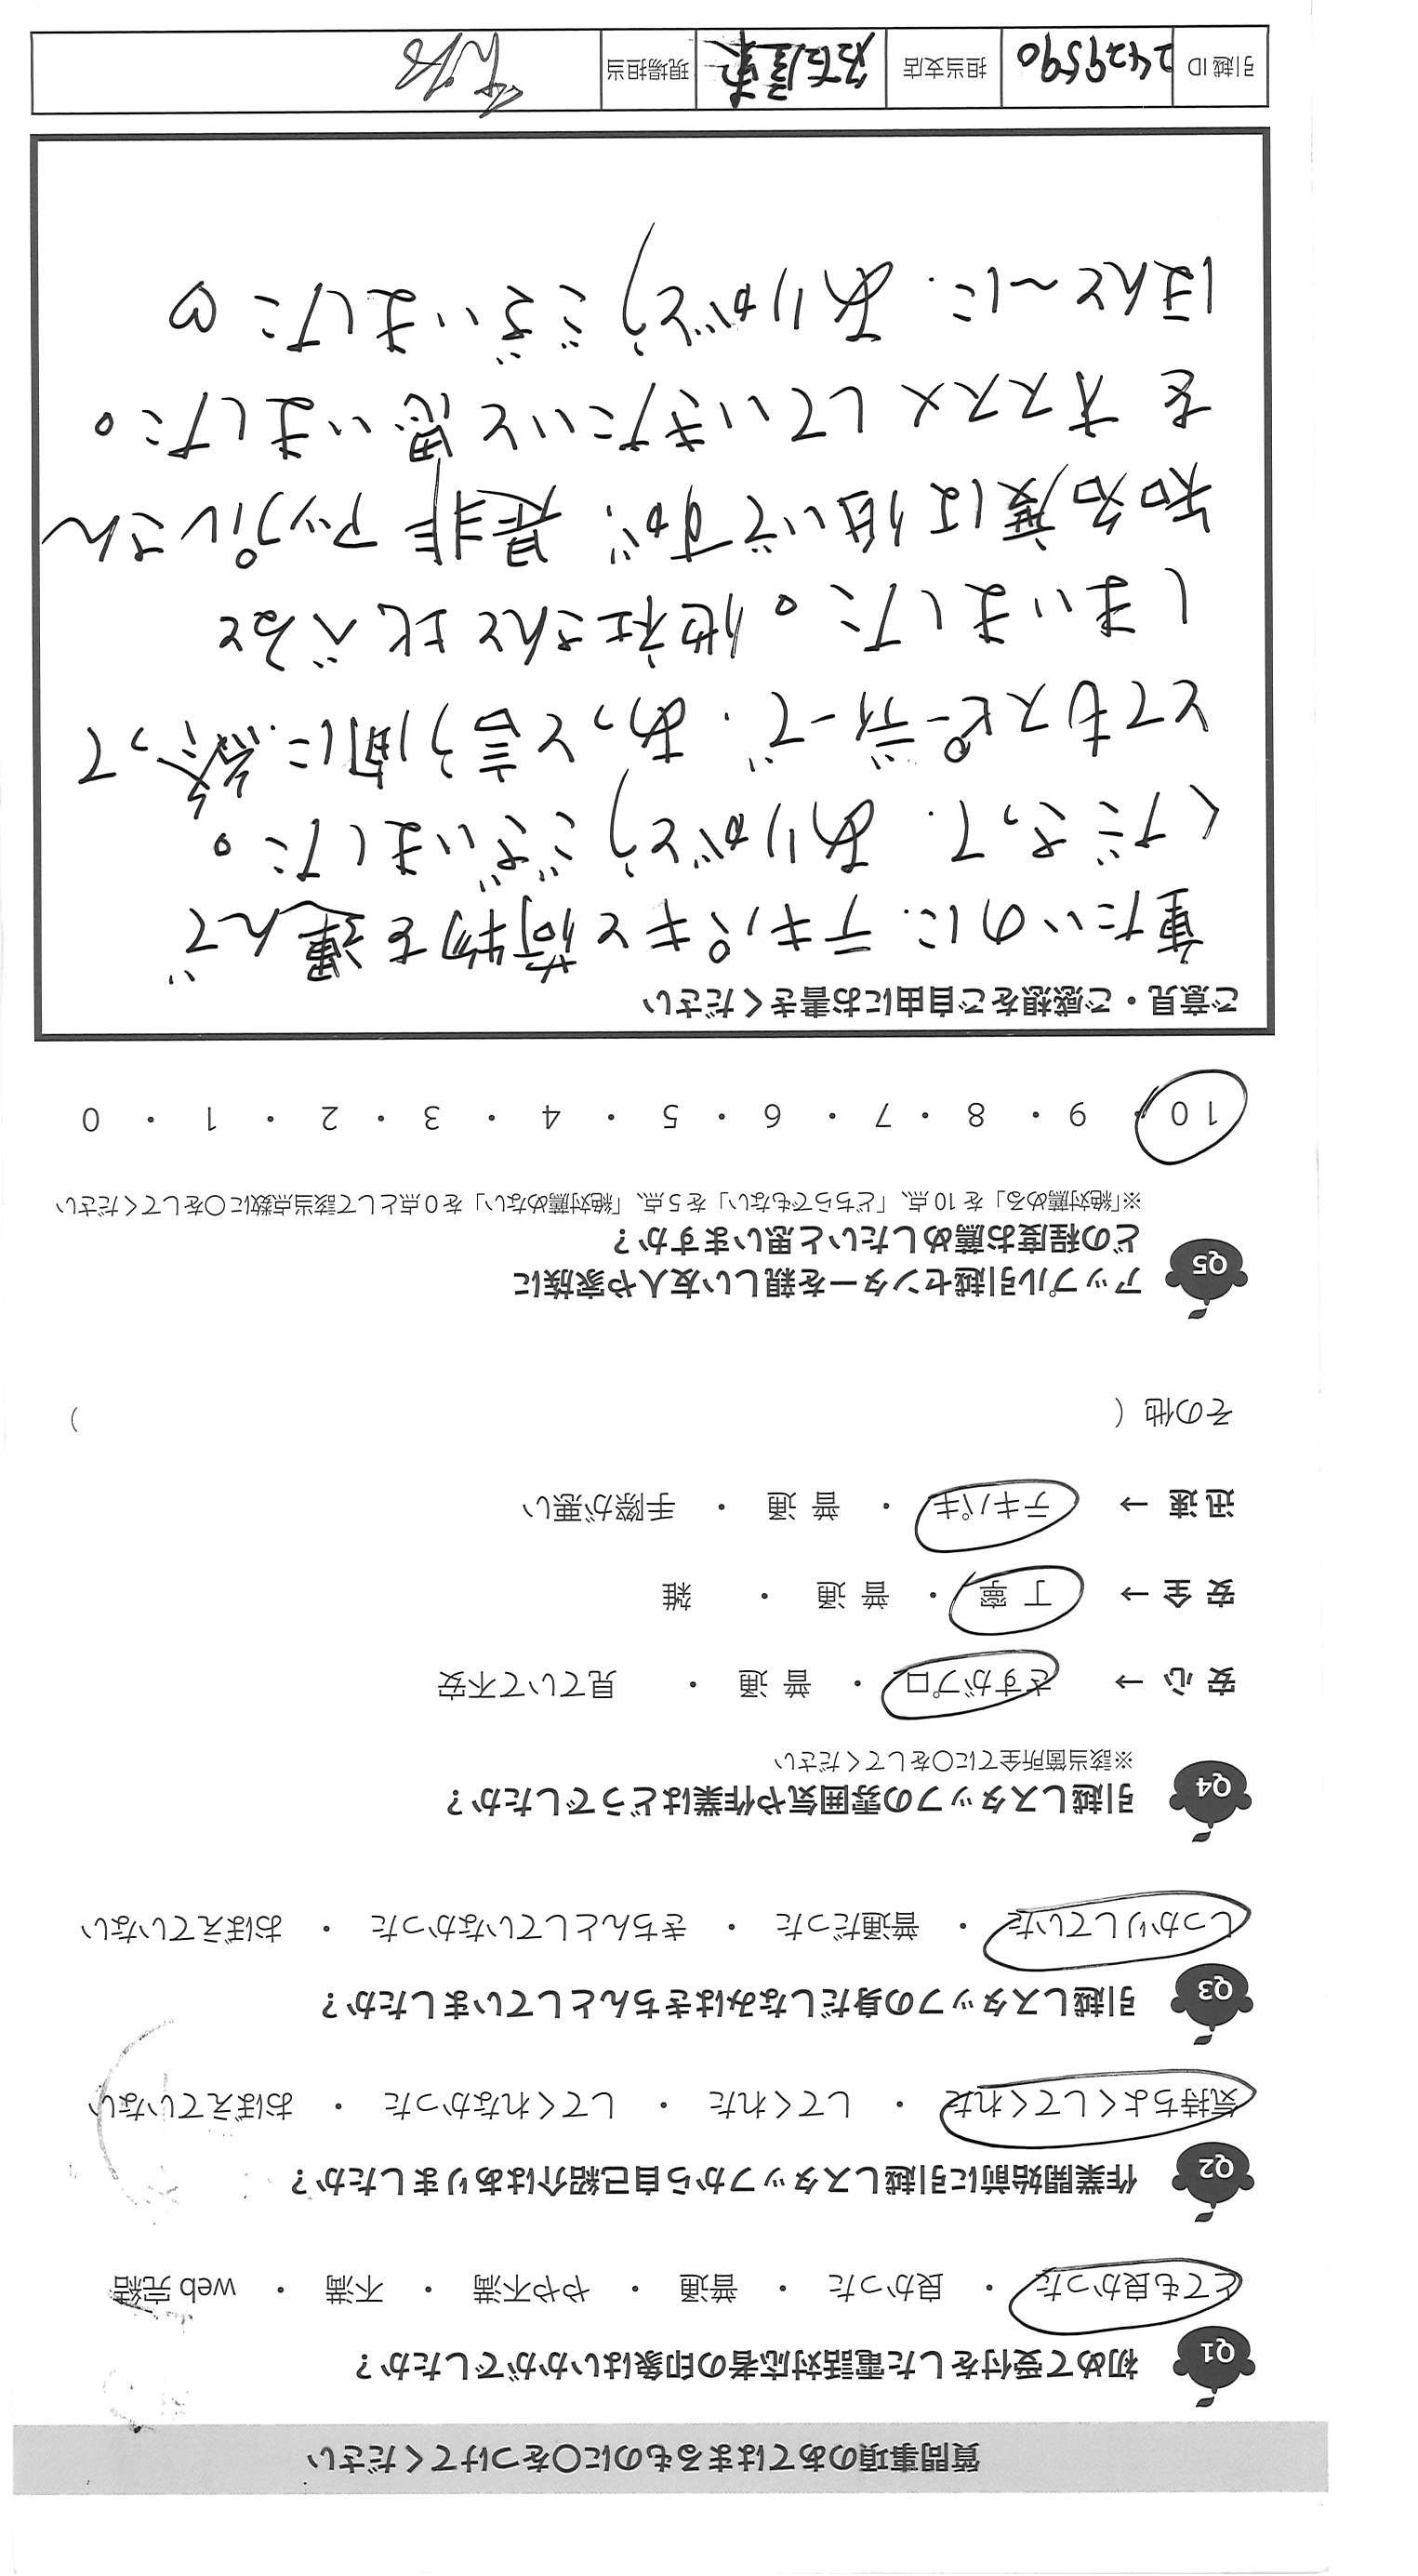 質問事項のあてはまるものに〇をつけてください
Q1 初めて受付をした電話対応者の印象はいかがでしたか？
とても良かった ・ 良かった ・ 普通 ・ やや不満 ・ 不満 ・ web 完結
Q2 作業開始前に引越しスタッフから自己紹介はありましたか？
気持ちよくしてくれた ・ してくれた ・ してくれなかった ・ おぼえていない
Q3 引越しスタッフの身だしなみはきちんとしていましたか？
しっかりしていた ・ 普通だった ・ きちんとしていなかった ・ おぼえていない
Q4 引越しスタッフの雰囲気や作業はどうでしたか？
※該当箇所全てに〇をしてください
安 心 → さすがプロ ・ 普 通 ・ 見ていて不安
安 全 → 丁 寧 ・ 普 通 ・ 雑
迅 速 → テキパキ ・ 普 通 ・ 手際が悪い
その他（ ）
Q5 アップル引越センターを親しい友人や家族に
どの程度お薦めしたいと思いますか？
※「絶対薦める」を 10 点、「どちらでもない」を 5 点、「絶対薦めない」を 0 点として該当点数に〇をしてください
10 ・ 9 ・ 8 ・ 7 ・ 6 ・ 5 ・ 4 ・ 3 ・ 2 ・ 1 ・ 0
ご意見・ご感想をご自由にお書きください
重たいのに、テキパキと荷物を運んで
くださって、ありがとうございました。
とてもスピーディーで、あっと言う間に、終って
しまいました。他社さんと比べると
知名度は低いですが、是非アップルさん
をオススメしていきたいと思いました。
ほんと〜に、ありがとうございました
引越 ID 2429590 担当支店 名古屋東 現場担当